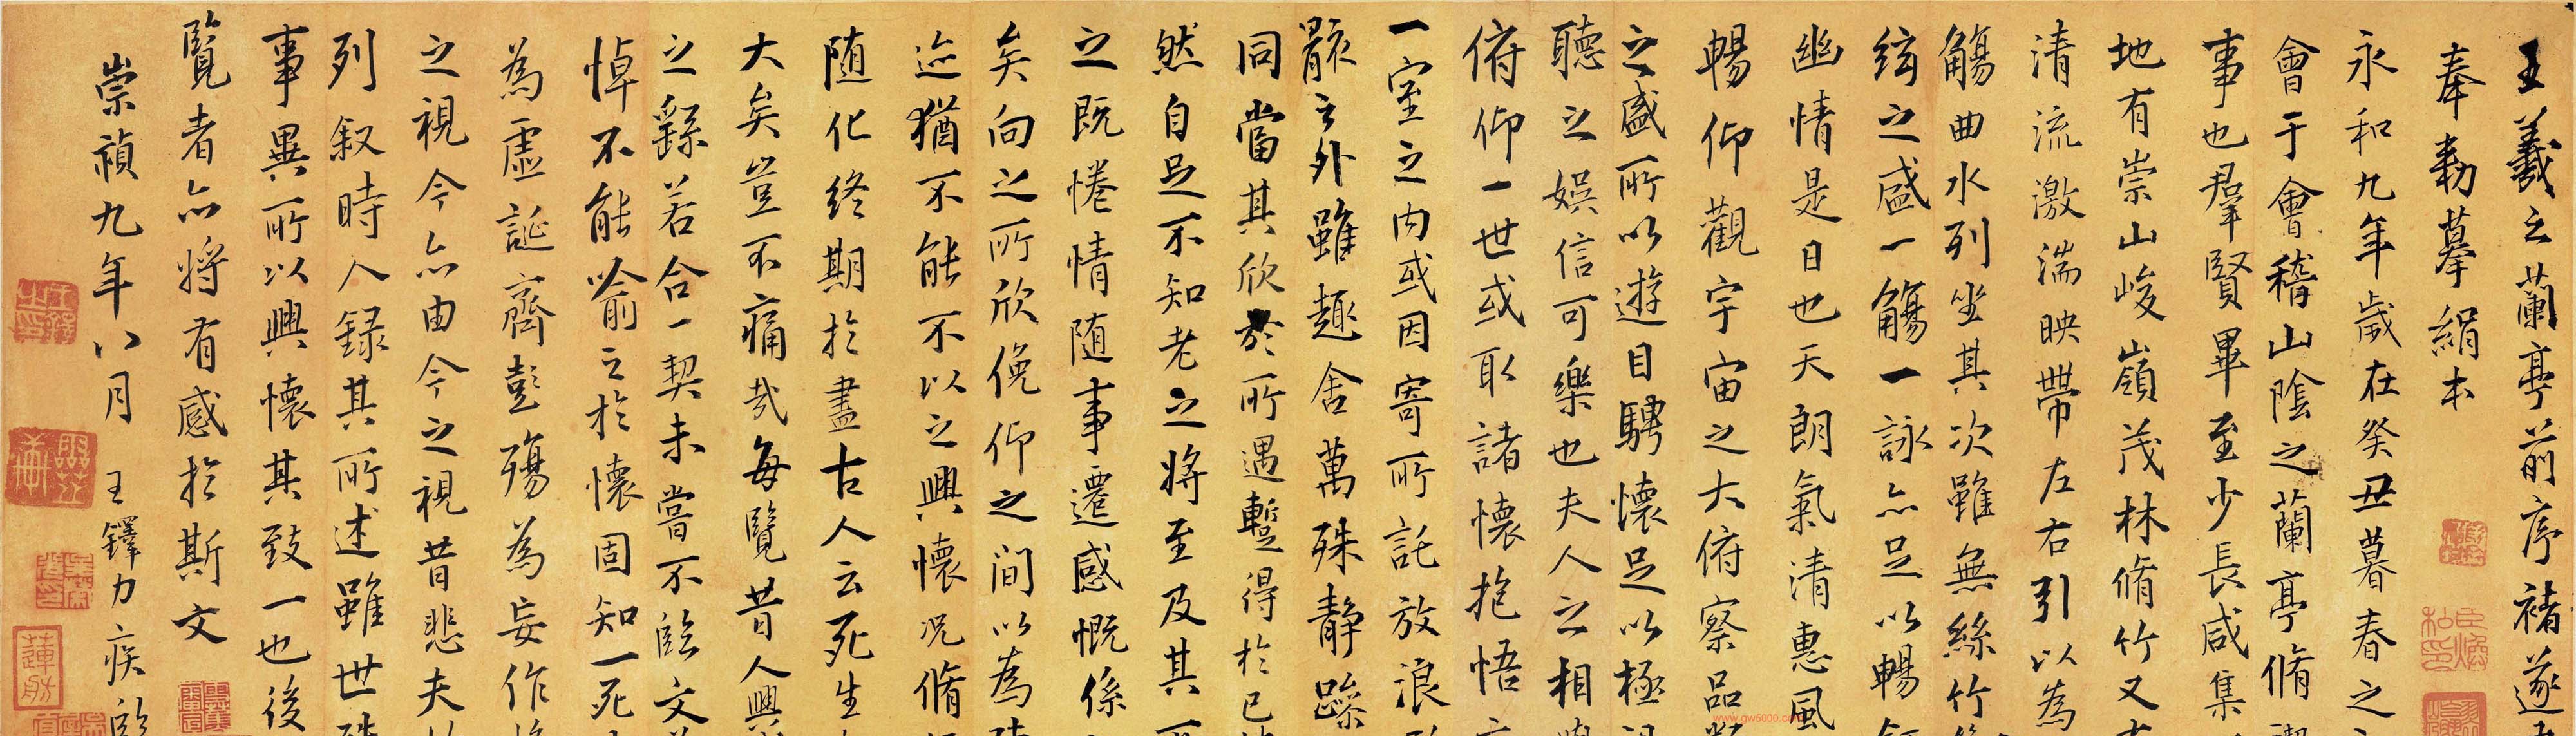 王羲之蘭亭前序褚遂
奉勅摹絹本
永和九年歲在癸丑暮春之
會于會稽山陰之蘭亭脩
事也羣賢畢至少長咸集
地有崇山峻嶺茂林脩竹又
清流激湍映帶左右引以為
觴曲水列坐其次雖無絲竹
絃之盛一觴一詠亦足以暢
幽情是日也天朗氣清惠風
暢仰觀宇宙之大俯察品
之盛所以遊目騁懷足以極
聽之娛信可樂也夫人之相
俯仰一世或取諸懷抱悟
一室之內或因寄所託放浪
骸之外雖趣舍萬殊靜躁
同當其欣於所遇蹔得於己
然自足不知老之將至及其
之既惓情隨事遷感慨係
矣向之所欣俛仰之間以為
迹猶不能不以之興懷況脩
隨化終期於盡古人云死生
大矣豈不痛哉每覽昔人興
之繇若合一契未嘗不臨文
悼不能喻之於懷固知一死
為虛誕齊彭殤為妄作
之視今亦由今之視昔悲夫
列敘時人錄其所述雖世
事異所以興懷其致一也後
覽者亦將有感於斯文
崇禎九年八月 王鐸力疾臨
蓮舫
www.gw5000.com